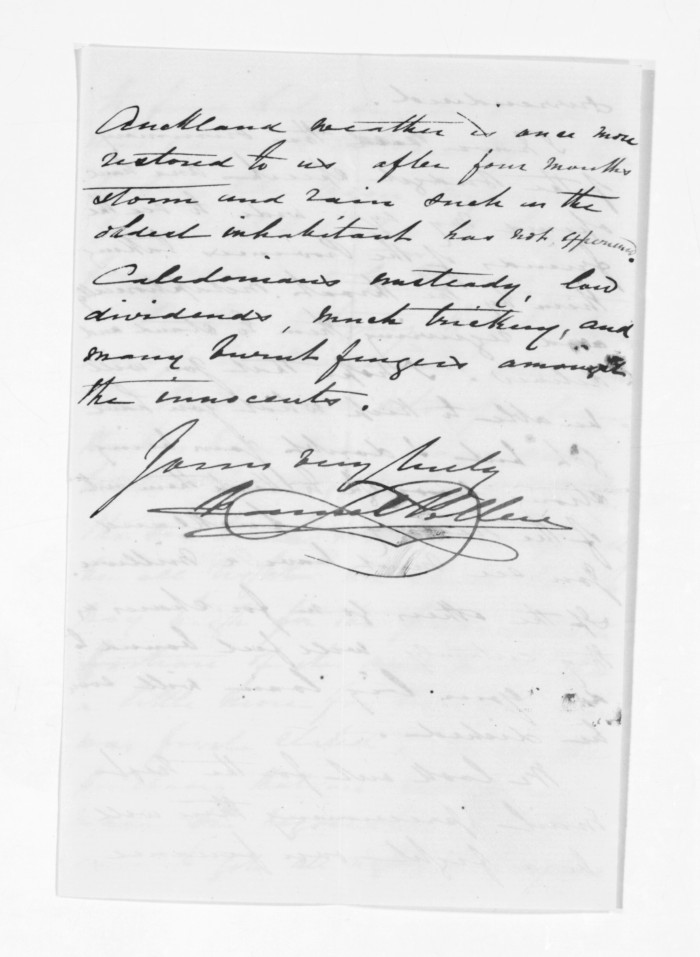 Auckland weather is once more
restored to us after four months
storm and rain such as the
oldest inhabitant has not experienced.
Caledonians unsteady, low
dividends, much trickery, and
many burnt fingers amongst
the innocents.
Yours very truly
Daniel Pollen